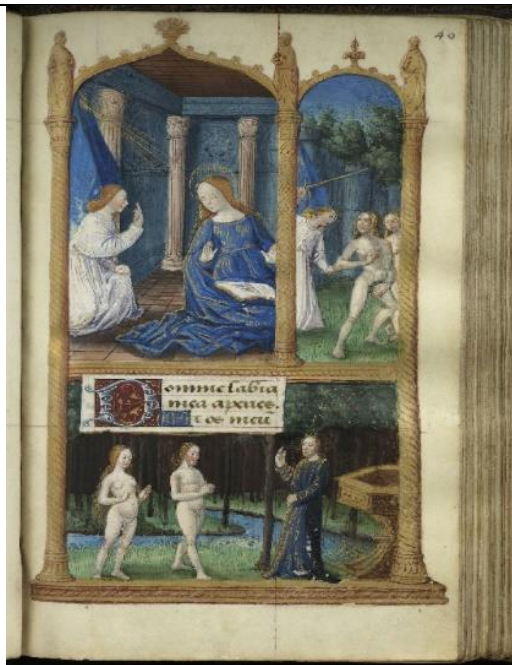 40
Domine labia
mea aperies.
Et os meū